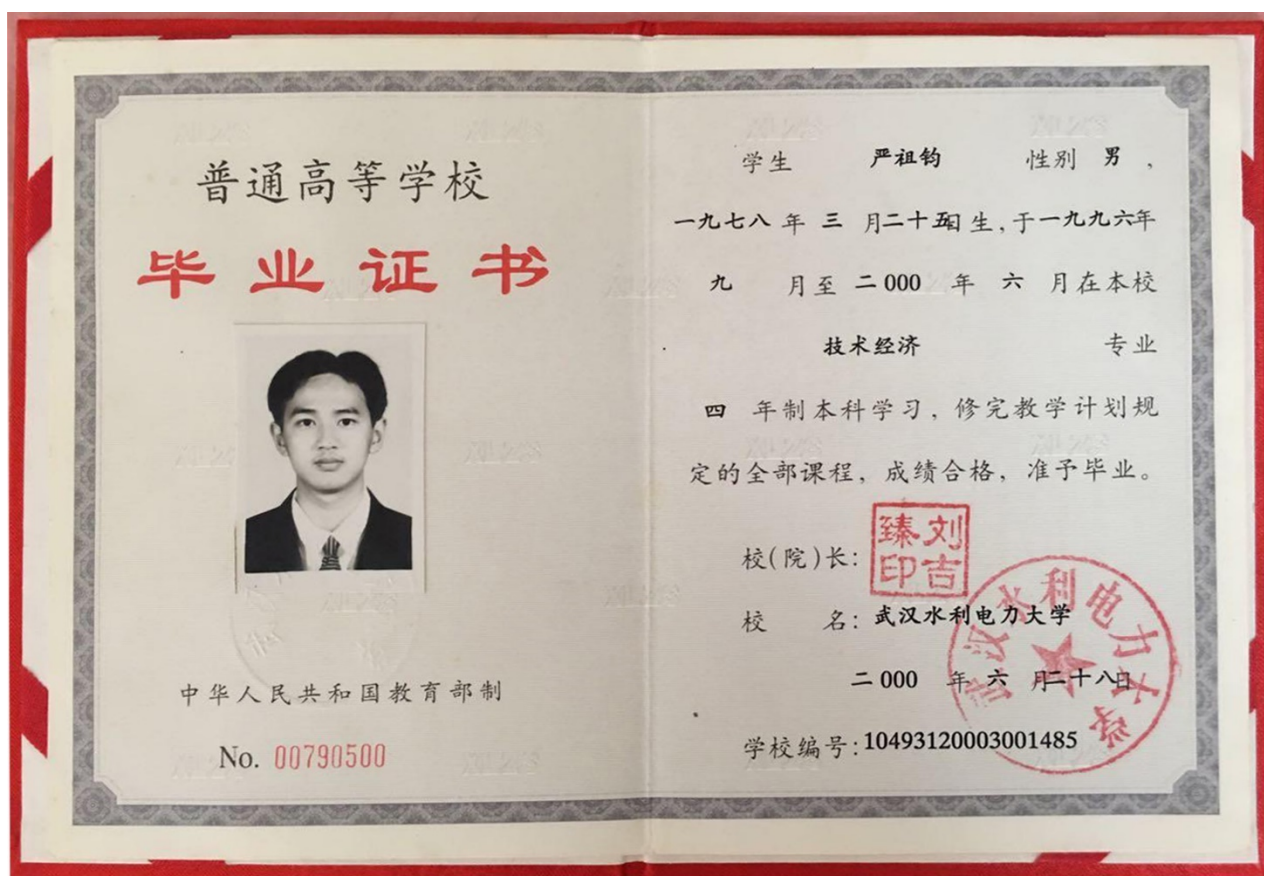 普通高等学校
毕业证书
中华人民共和国教育部制
No. 00790500
学生 严祖钧 性别 男,
一九七八 年 三 月二十五日生,于一九九六年
九 月至 二000 年 六 月在本校
技术经济 专业
四 年制本科学习,修完教学计划规
定的全部课程,成绩合格,准予毕业。
校(院)长:
刘吉臻印
校 名:武汉水利电力大学
武汉水利电力大学
二000 年 六 月二十八日
学校编号:10493120003001485